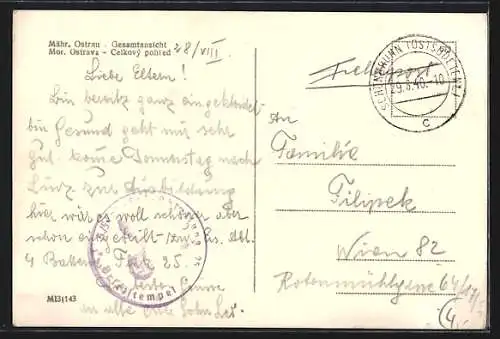 Mähr. Ostrau - Gesamtansicht
Mor. Ostrava - Celkový pohled
28/VIII
Liebe Eltern!
Bin bereits ganz eingekleidet
bin Gesund geht mir sehr
gut. kome Donnerstag nach
Linz zur Ausbildung
hier wär es woll schöner aber
schon eingeteilt Abt.
4 Batterie Flak 25.
an alle Euer Sohn Leo.
Briefstempel
M131143
Feldpost
SCHÖNBRUNN (OSTSUDETENL)
29.8.40.-10
c
An
Familie
Filipek
Wien 82
Rotenmühlgasse 64/17/
(4)